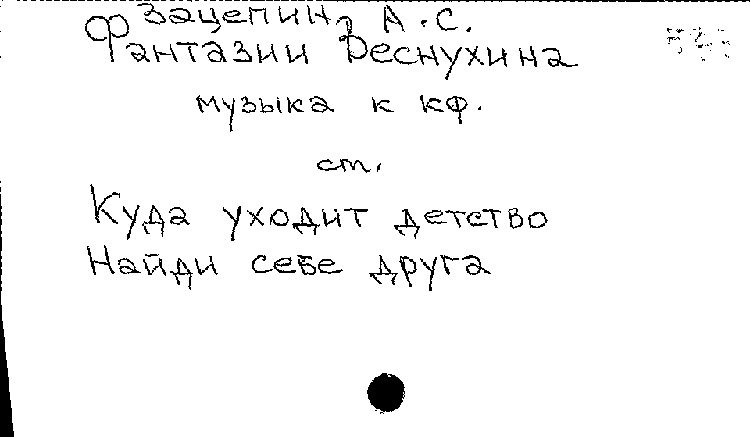 Зацепин, А.С.
Фантазии Веснухина
музыка к кф.
ст.
Куда уходит детство
Найди себе друга